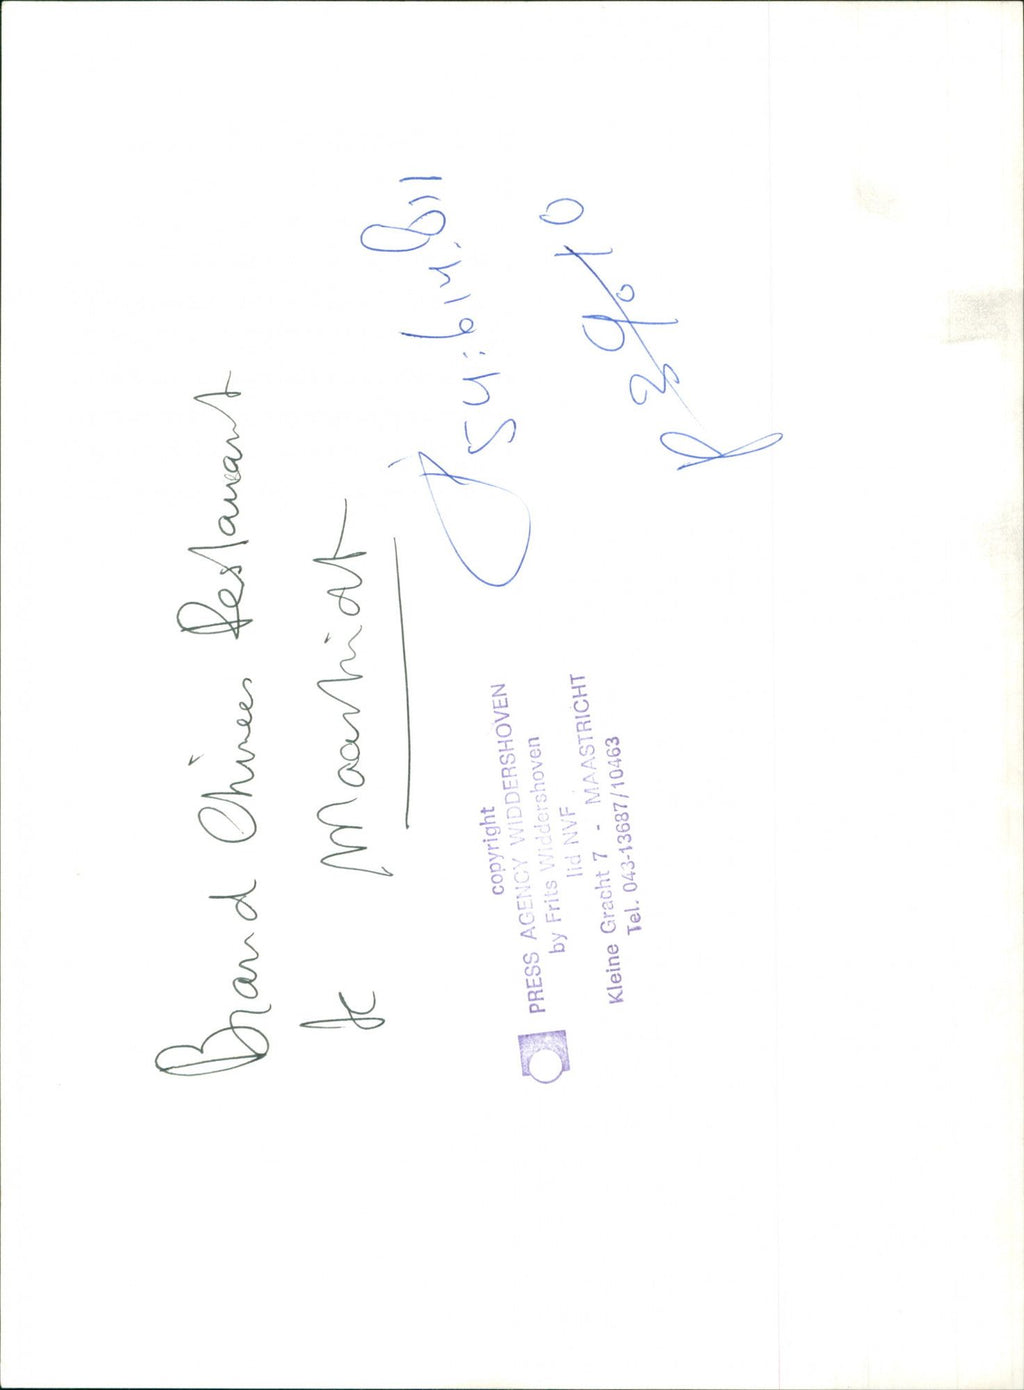 Brand Chinees Restaurant
te Maastricht
54:614.611
R 39010
copyright
PRESS AGENCY WIDDERSHOVEN
by Frits Widdershoven
lid NVF
Kleine Gracht 7 - MAASTRICHT
Tel. 043-13687/10463